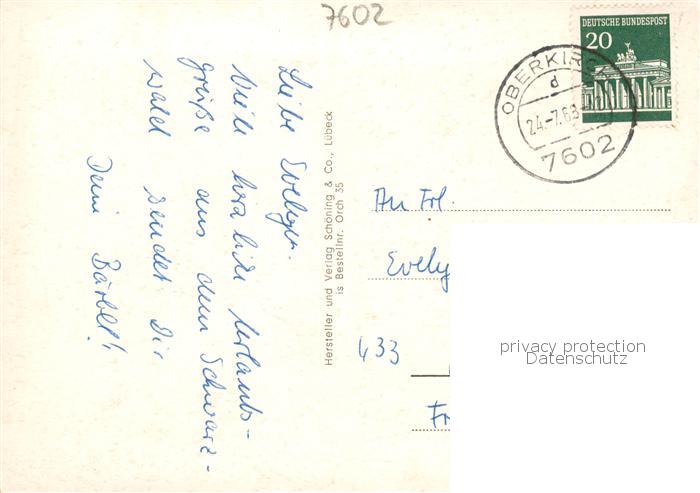 7602
DEUTSCHE BUNDESPOST
20
OBERKIRCH
d
24.-7.68
7602
Liebe Evelyn.
Viele herzliche Urlaubs-
grüße aus dem Schwarz-
wald sendet Dir
Deine Bärbel!
Hersteller und Verlag Schöning & Co., Lübeck
is Bestellnr. Orch 35
An Frl.
Evely
433
privacy protection
Datenschutz